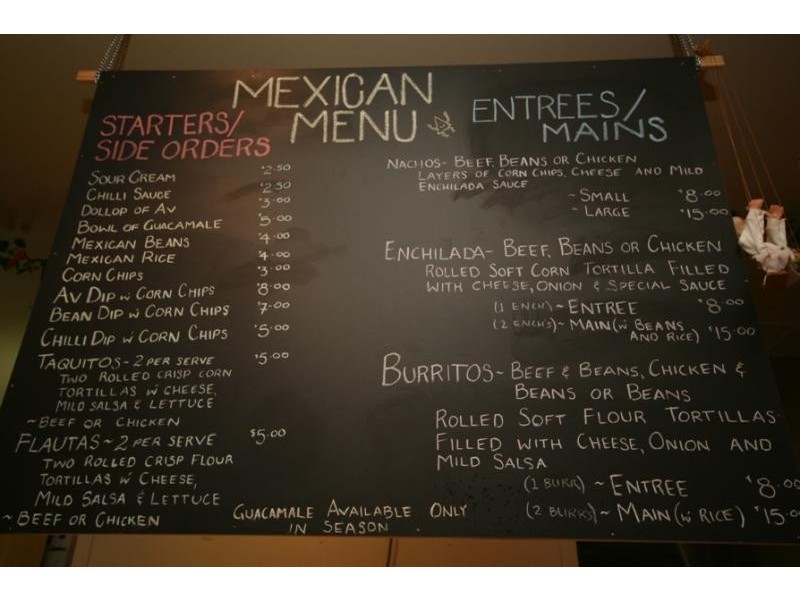 MEXICAN
MENU
STARTERS/
SIDE ORDERS
SOUR CREAM $2.50
CHILLI SAUCE $2.50
DOLLOP OF AV $3.00
BOWL OF GUACAMALE $5.00
MEXICAN BEANS $4.00
MEXICAN RICE $4.00
CORN CHIPS $3.00
AV DIP w CORN CHIPS $8.00
BEAN DIP w CORN CHIPS $7.00
CHILLI DIP w CORN CHIPS $5.00
TAQUITOS - 2 PER SERVE $5.00
TWO ROLLED CRISP CORN
TORTILLAS w CHEESE,
MILD SALSA & LETTUCE
~ BEEF OR CHICKEN
FLAUTAS ~ 2 PER SERVE $5.00
TWO ROLLED CRISP FLOUR
TORTILLAS w CHEESE,
MILD SALSA & LETTUCE
~ BEEF OR CHICKEN
GUACAMALE AVAILABLE ONLY
IN SEASON
ENTREES/
MAINS
NACHOS - BEEF, BEANS OR CHICKEN
LAYERS OF CORN CHIPS, CHEESE AND MILD
ENCHILADA SAUCE
~ SMALL $8.00
~ LARGE $15.00
ENCHILADA - BEEF, BEANS OR CHICKEN
ROLLED SOFT CORN TORTILLA FILLED
WITH CHEESE, ONION & SPECIAL SAUCE
(1 ENCH) ~ ENTREE $8.00
(2 ENCH'S) ~ MAIN (w BEANS
AND RICE) $15.00
BURRITOS ~ BEEF & BEANS, CHICKEN &
BEANS OR BEANS
ROLLED SOFT FLOUR TORTILLAS
FILLED WITH CHEESE, ONION AND
MILD SALSA
(1 BURR) ~ ENTREE $8.00
(2 BURR'S) ~ MAIN (w RICE) $15.00